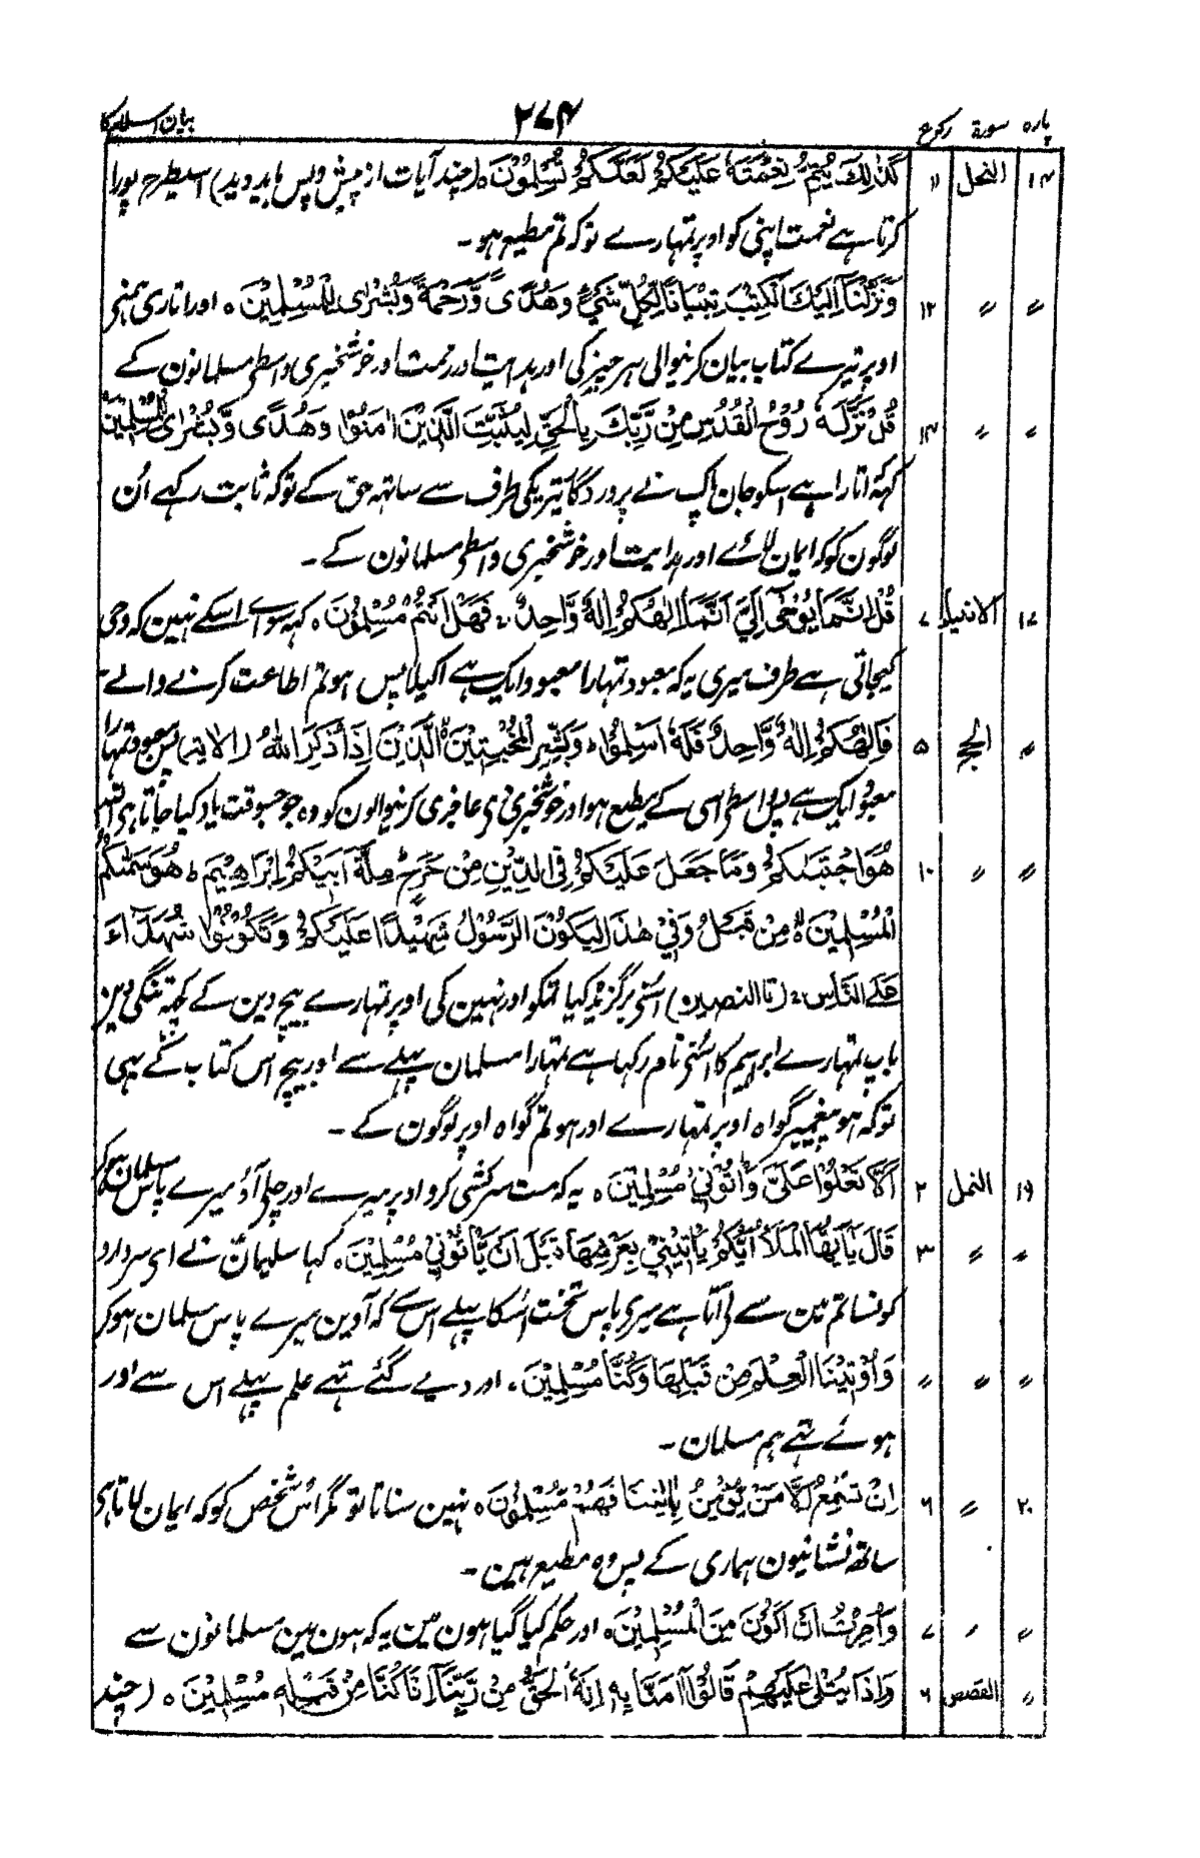 پارہ سورۃ رکوع ۲۷۴ بیان اسلام کا
۱۴ النحل ۱۱ كَذٰلِكَ يُتِمُّ نِعْمَتَهٗ عَلَيْكُمْ لَعَلَّكُمْ تُسْلِمُوْنَ ہ (چند آیات از پیش و پس باید دید) اسیطرح پورا
کرتا ہے نعمت اپنی کو اوپر تمہارے توکہ تم مطیع ہو۔
〃 〃 ۱۲ وَنَزَّلْنَا اِلَيْكَ الْكِتٰبَ تِبْيَانًا لِّكُلِّ شَيْءٍ وَّهُدًى وَّرَحْمَةً وَّبُشْرٰى لِلْمُسْلِمِيْنَ ہ اور اتاری ہمنی
اوپر تیرے کتاب بیان کرنیوالی ہر چیز کی اور ہدایت اور رحمت اور خوشخبری واسطی مسلمانون کے
〃 〃 ۱۴ قُلْ نَزَّلَهٗ رُوْحُ الْقُدُسِ مِنْ رَّبِّكَ بِالْحَقِّ لِيُثَبِّتَ الَّذِيْنَ اٰمَنُوْا وَهُدًى وَّبُشْرٰى لِلْمُسْلِمِيْنَ
کہہ اتارا ہے اسکو جان پاک نے پروردگار تیریکی طرف سے ساتھ حق کے توکہ ثابت رکہے اُن
لوگون کو کہ ایمان لائے اور ہدایت اور خوشخبری واسطی مسلمانون کے۔
۱۷ الانبیاء ۷ قُلْ اِنَّمَا يُوْحٰى اِلَيَّ اَنَّمَا اِلٰهُكُمْ اِلٰهٌ وَّاحِدٌ ۚ فَهَلْ اَنْتُمْ مُّسْلِمُوْنَ ہ کہہ سوائے اسکے نہین کہ وحی
کیجاتی ہے طرف میری یہ کہ معبود تمہارا معبود ایک ہے اکیلا پس ہو تم اطاعت کرنے والے۔
〃 الحج ۵ فَاِلٰهُكُمْ اِلٰهٌ وَّاحِدٌ فَلَهٗ اَسْلِمُوْا ؕ وَبَشِّرِ الْمُخْبِتِيْنَ الَّذِيْنَ اِذَا ذُكِرَ اللهُ (الایۃ) پس معبود تمہارا
معبود ایک ہے پس واسطی اسی کے مطیع ہو اور خوشخبری دی عاجزی کرنیوالون کو وہ جو جسوقت یاد کیا جاتا ہے
〃 〃 ۱۰ هُوَ اجْتَبٰىكُمْ وَمَا جَعَلَ عَلَيْكُمْ فِى الدِّيْنِ مِنْ حَرَجٍ مِلَّةَ اَبِيْكُمْ اِبْرَاهِيْمَ ؕ هُوَ سَمّٰىكُمُ
الْمُسْلِمِيْنَ ۙ مِنْ قَبْلُ وَفِيْ هٰذَا لِيَكُوْنَ الرَّسُوْلُ شَهِيْدًا عَلَيْكُمْ وَتَكُوْنُوْا شُهَدَآءَ
عَلَى النَّاسِ ۚ (تا النصیر) اُسنی برگزیدہ کیا تمکو اور نہین کی اوپر تمہارے بیچ دین کے کچھ تنگی دین
باپ تمہارے ابراہیم کا اُسنی نام رکہا ہے تمہارا مسلمان پہلے سے اور بیچ اس کتاب کے بہی
توکہ ہو پیغمبر گواہ اوپر تمہارے اور ہو تم گواہ اوپر لوگون کے۔
۱۹ النمل ۲ اَلَّا تَعْلُوْا عَلَيَّ وَأْتُوْنِيْ مُسْلِمِيْنَ ہ یہ کہ مت سرکشی کرو اوپر میرے اور چلی آؤ میرے پاس مسلمان ہوکر
〃 〃 ۳ قَالَ يٰٓاَيُّهَا الْمَلَؤُا اَيُّكُمْ يَاْتِيْنِيْ بِعَرْشِهَا قَبْلَ اَنْ يَّاْتُوْنِيْ مُسْلِمِيْنَ ہ کہا سلیمان نے ای سردارو
کونسا تم مین سے لی آتا ہے میری پاس تخت اُسکا پہلے اس سے کہ آوین میرے پاس مسلمان ہوکر
〃 〃 〃 وَاُوْتِيْنَا الْعِلْمَ مِنْ قَبْلِهَا وَكُنَّا مُسْلِمِيْنَ ہ اور دیے گئے تہے علم پہلے اس سے اور
ہوئے تہے ہم مسلمان۔
۲۰ 〃 ۶ اِنْ تُسْمِعُ اِلَّا مَنْ يُّؤْمِنُ بِاٰيٰتِنَا فَهُمْ مُّسْلِمُوْنَ ہ نہین سناتا تو مگر اُس شخص کو کہ ایمان لاتا ہی
ساتھ نشانیون ہماری کے پس وہ مطیع ہین۔
〃 〃 ۷ وَاُمِرْتُ اَنْ اَكُوْنَ مِنَ الْمُسْلِمِيْنَ ہ اور حکم کیا گیا ہون مین یہ کہ ہون مین مسلمانون سے
〃 القصص ۶ وَاِذَا يُتْلٰى عَلَيْهِمْ قَالُوْا اٰمَنَّا بِهٖ اِنَّهُ الْحَقُّ مِنْ رَّبِّنَا اِنَّا كُنَّا مِنْ قَبْلِهٖ مُسْلِمِيْنَ ہ (چند